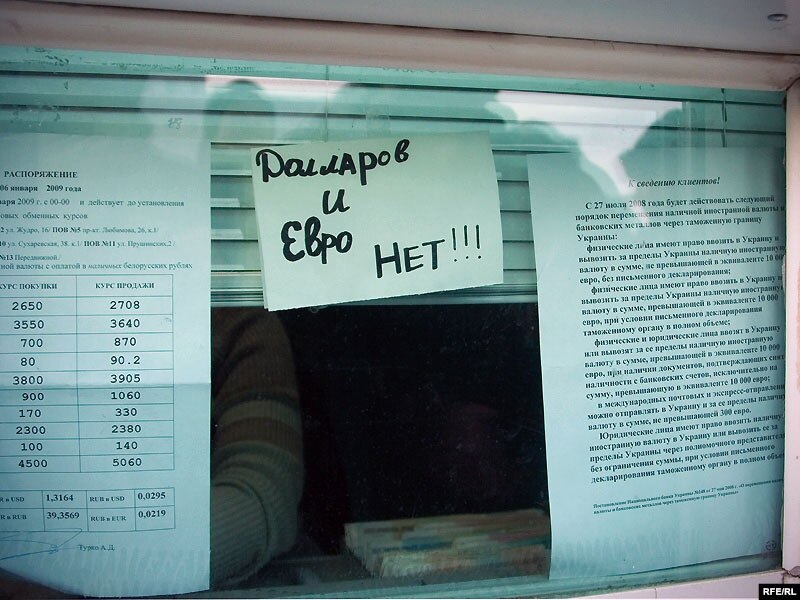 РАСПОРЯЖЕНИЕ
06 января 2009 года
2009 г. с 00-00 и действует до установления
обменных курсов
ул. Жудро, 16/ ПОВ №5 пр-кт. Любимова, 26, к.1/
ул. Сухаревская, 38. к.1/ ПОВ №11 ул. Прушинских,2 /
№13 Передвижной./
валюты с оплатой в наличных белорусских рублях
КУРС ПОКУПКИ КУРС ПРОДАЖИ
2650 2708
3550 3640
700 870
80 90.2
3800 3905
900 1060
170 330
2300 2380
100 140
4500 5060
в USD 1,3164 RUB в USD 0,0295
в RUB 39,3569 RUB в EUR 0,0219
Турко А.Д.
Долларов
и
Евро
НЕТ!!!
К сведению клиентов!
С 27 июля 2008 года будет действовать следующий
порядок перемещения наличной иностранной валюты и
банковских металлов через таможенную границу
Украины:
физические лица имеют право ввозить в Украину и
вывозить за пределы Украины наличную иностранную
валюту в сумме, не превышающей в эквиваленте 10 000
евро, без письменного декларирования;
физические лица имеют право ввозить в Украину и
вывозить за пределы Украины наличную иностранную
валюту в сумме, превышающей в эквиваленте 10 000
евро, при условии письменного декларирования
таможенному органу в полном объеме;
физические и юридические лица ввозят в Украину
или вывозят за ее пределы наличную иностранную
валюту в сумме, превышающей в эквиваленте 10 000
евро, при наличии документов, подтверждающих
наличности с банковских счетов, исключительно на
сумму, превышающую в эквиваленте 10 000 евро;
в международных почтовых и экспресс-отправлениях
можно отправлять в Украину и за ее пределы наличную
валюту в сумме, не превышающей 300 евро.
Юридические лица имеют право ввозить наличную
иностранную валюту в Украину или вывозить ее за
пределы Украины через полномочного представителя
без ограничения суммы, при условии письменного
декларирования таможенному органу в полном объеме
Постановление Национального банка Украины №148 от 27 мая 2008 г. «О перемещении
валюты и банковских металлов через таможенную границу Украины»
RFE/RL